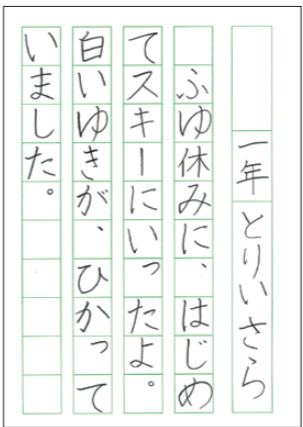 一年 とりいさら
ふゆ休みに、はじめ
てスキーにいったよ。
白いゆきが、ひかって
いました。